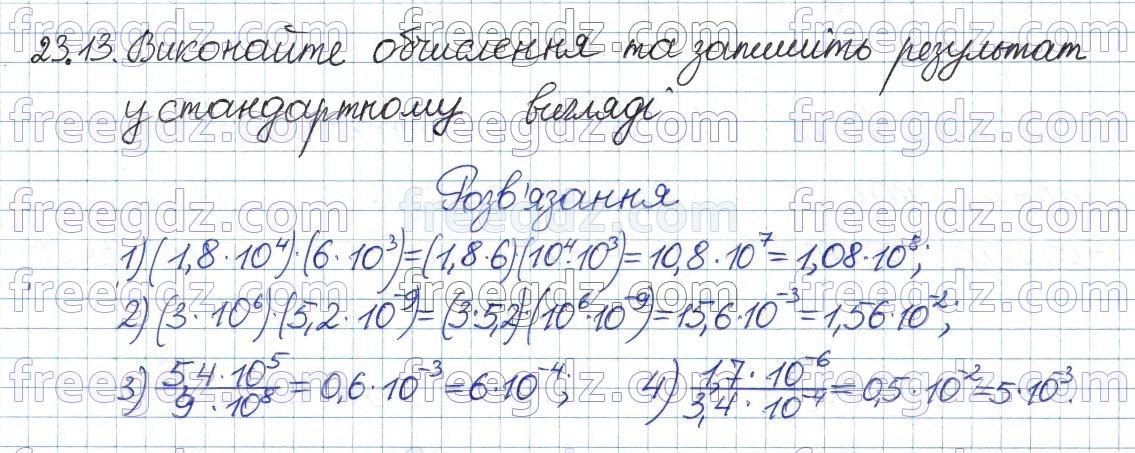 23.13. Виконайте обчислення та запишіть результат
у стандартному вигляді
Розв'язання
1) (1,8 · 10⁴) · (6 · 10³) = (1,8 · 6) · (10⁴ · 10³) = 10,8 · 10⁷ = 1,08 · 10⁸;
2) (3 · 10⁶) · (5,2 · 10⁻⁹) = (3 · 5,2) · (10⁶ · 10⁻⁹) = 15,6 · 10⁻³ = 1,56 · 10⁻²;
3) 5,4 · 10⁵ / 9 · 10⁸ = 0,6 · 10⁻³ = 6 · 10⁻⁴; 4) 1,7 · 10⁻⁶ / 3,4 · 10⁻⁴ = 0,5 · 10⁻² = 5 · 10⁻³.